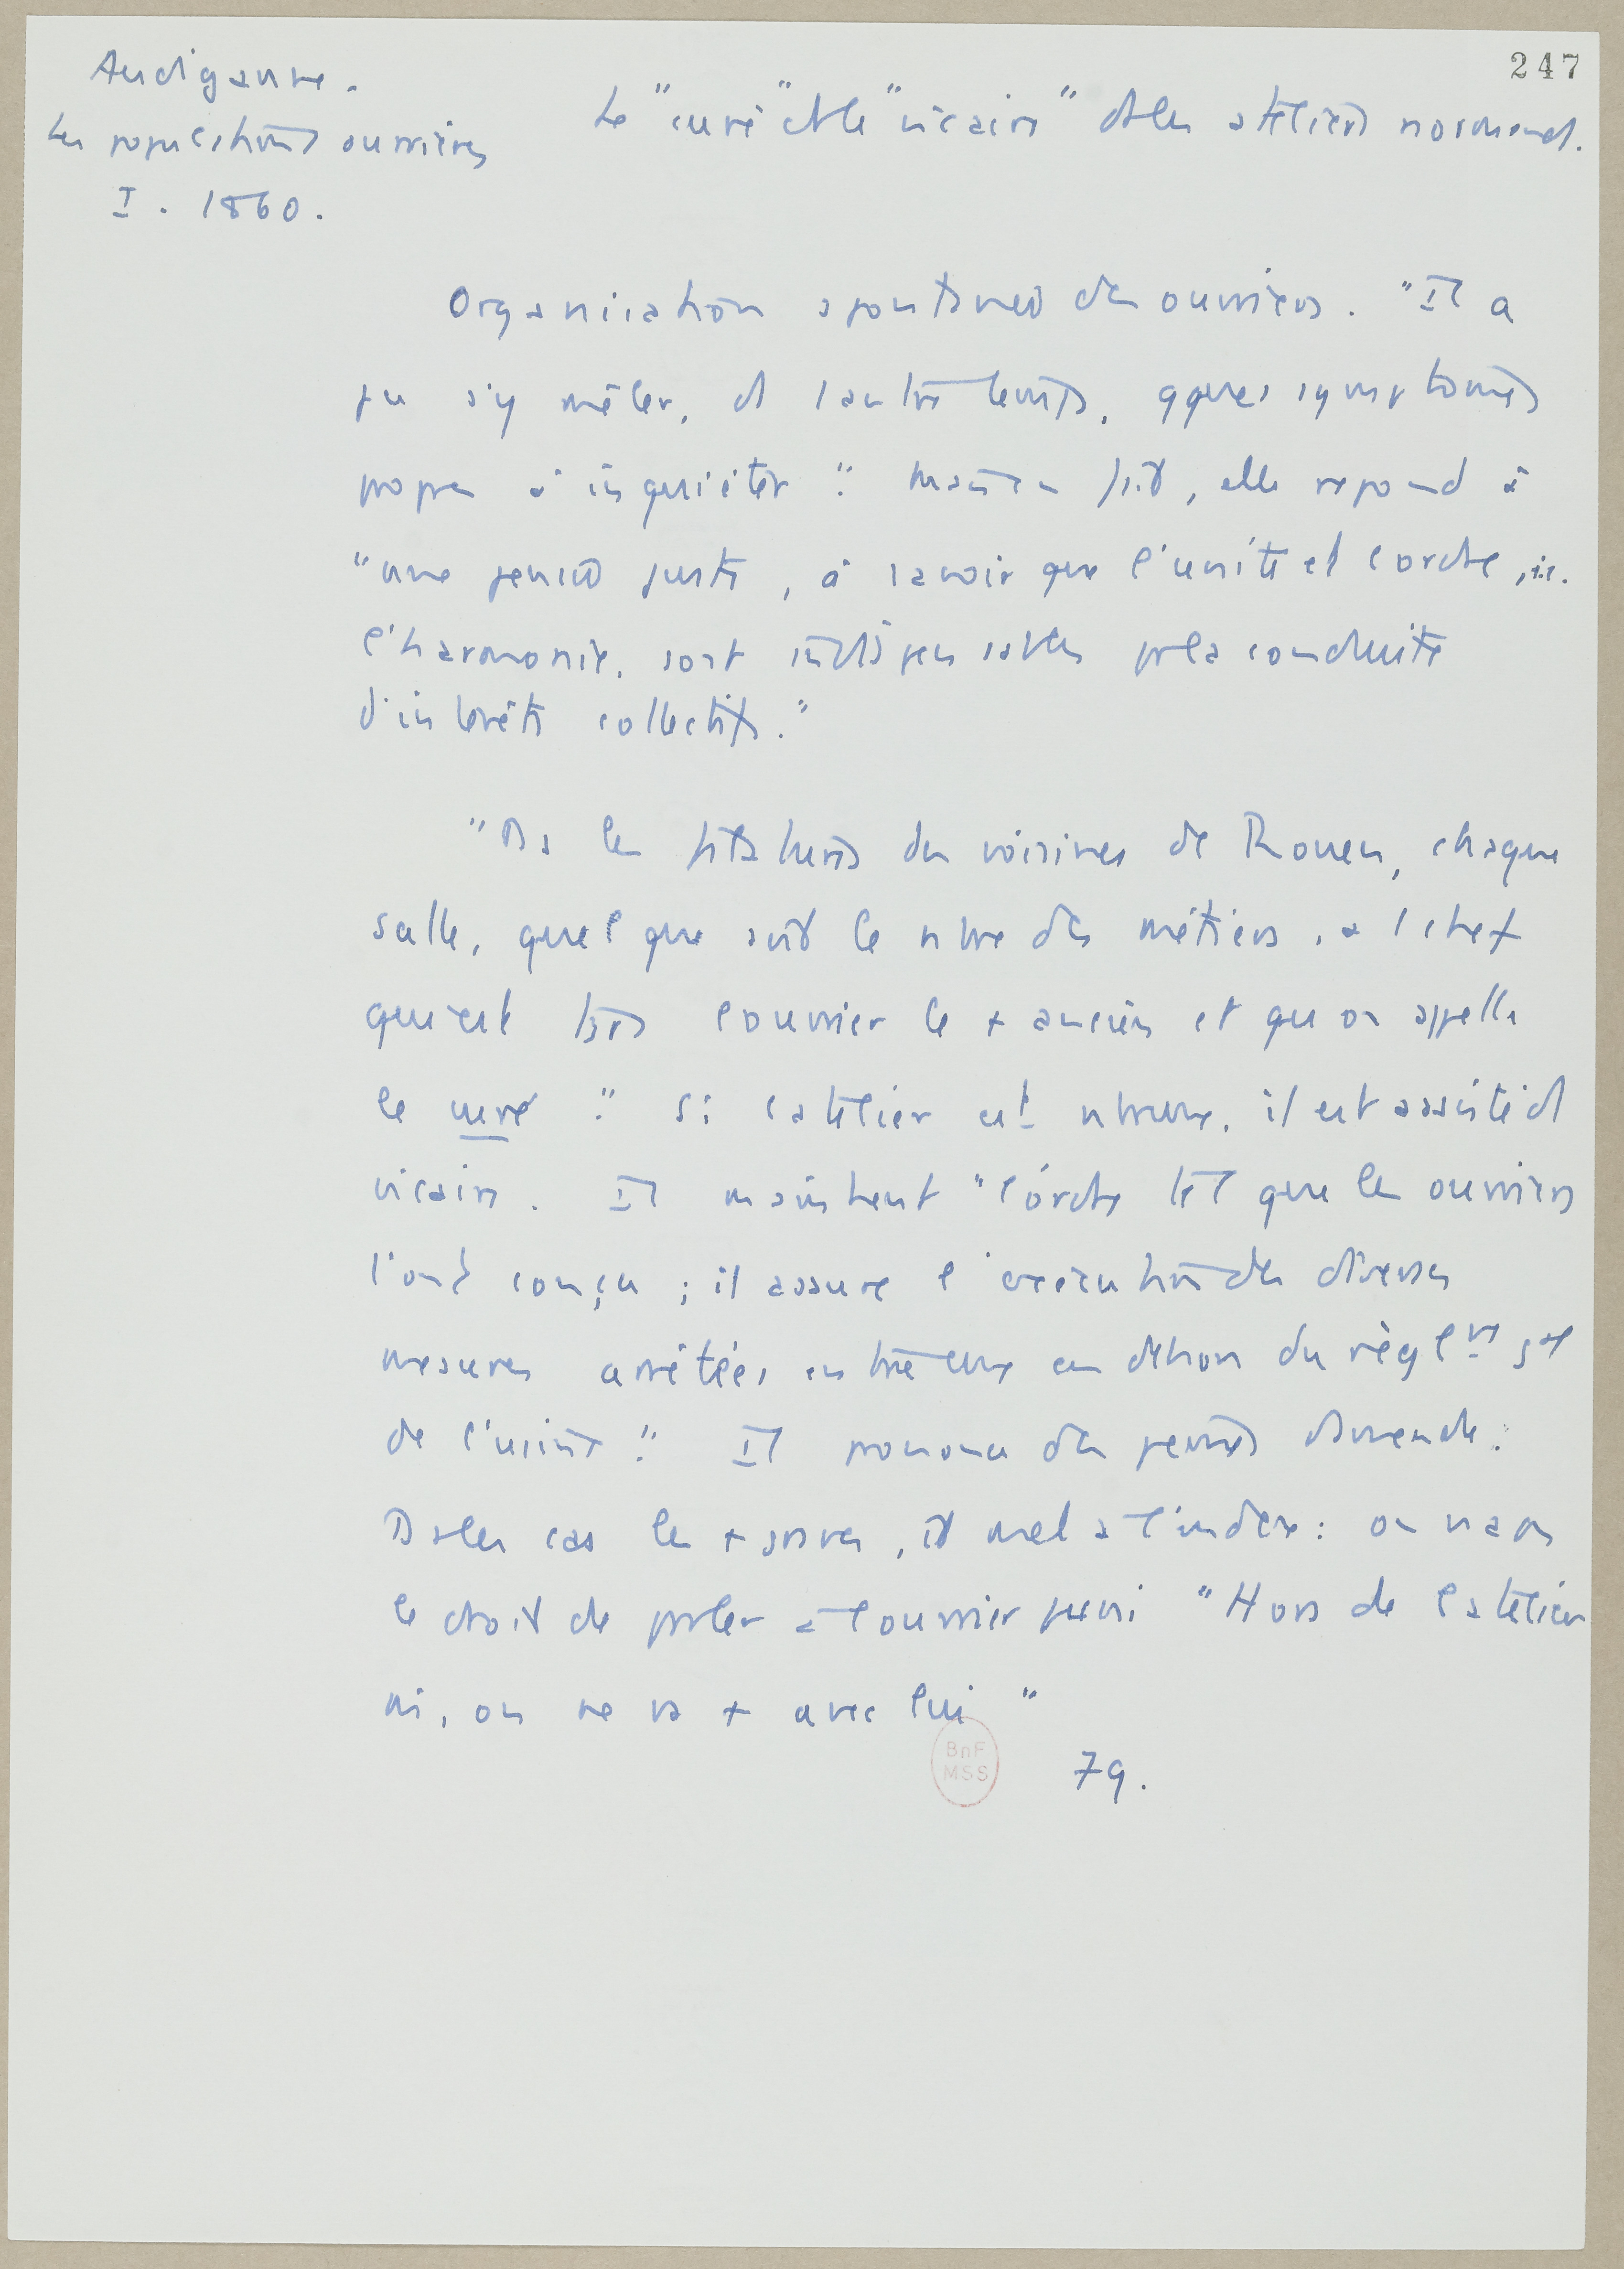 247
Audiganne.
Les populations ouvrières
I. 1860.
Le "curé" et le "vicaire" ds les ateliers normands.
Organisation spontanée des ouvriers. "Il a
pu s'y mêler, ds 1 autre temps, qques symptomes
propres à inquiéter". Mais en soi, elle répond à
"une pensée juste, à savoir que l'unité et l'ordre, i.e.
l'harmonie, sont indispensables pr la conduite
d'intérêts collectifs."
"Ds les filatures du voisinage de Rouen, chaque
salle, quel que soit le nbre des métiers, a 1 chef
qui est tjrs l'ouvrier le + ancien et qu'on appelle
le curé". Si l'atelier est nbreux, il est assisté d'1
vicaire. Il maintient "l'ordre tel que les ouvriers
l'ont conçu; il assure l'exécution des diverses
mesures arrêtées entre eux en dehors du règlnt gal
de l'usine". Il prononce des peines d'amende.
Ds les cas les + graves, il met à l'index: on n'a pas
le droit de parler à l'ouvrier puni "Hors de l'atelier
ni, on ne va + avec lui"
79.
BnF
MSS